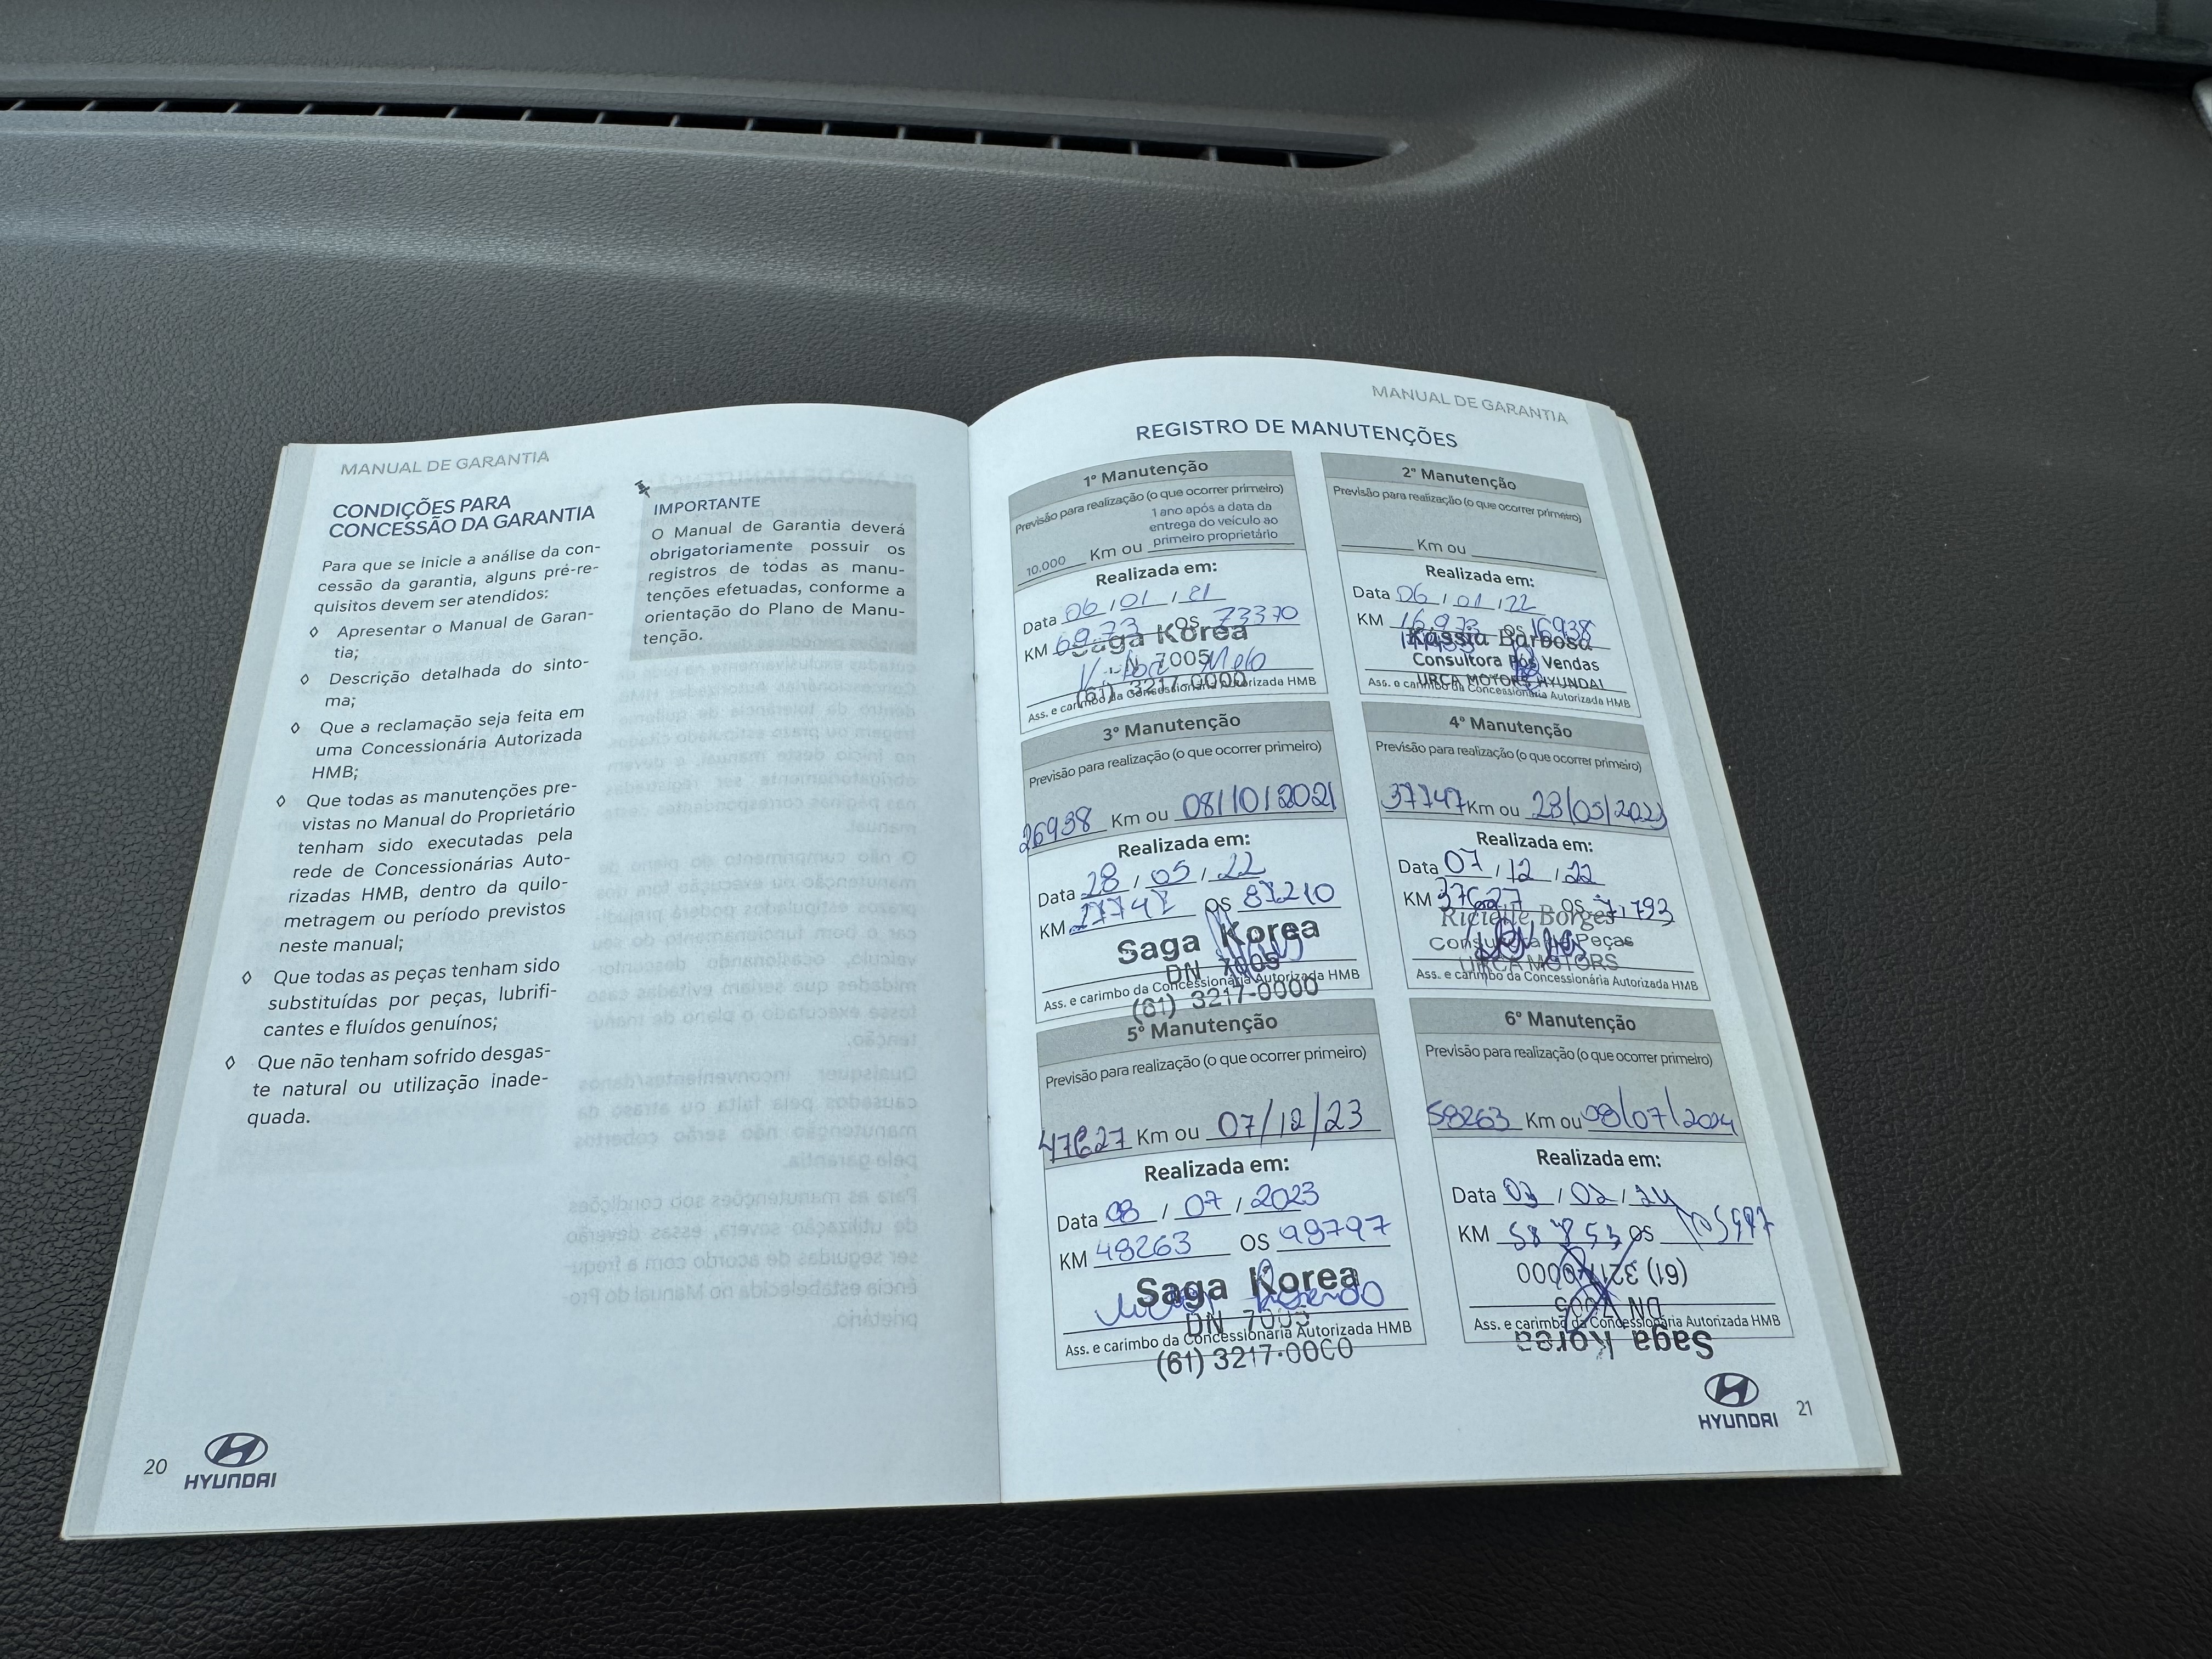 MANUAL DE GARANTIA
CONDIÇÕES PARA
CONCESSÃO DA GARANTIA
Para que se inicie a análise da con-
cessão da garantia, alguns pré-re-
quisitos devem ser atendidos:
◊ Apresentar o Manual de Garan-
tia;
◊ Descrição detalhada do sinto-
ma;
◊ Que a reclamação seja feita em
uma Concessionária Autorizada
HMB;
◊ Que todas as manutenções pre-
vistas no Manual do Proprietário
tenham sido executadas pela
rede de Concessionárias Auto-
rizadas HMB, dentro da quilo-
metragem ou período previstos
neste manual;
◊ Que todas as peças tenham sido
substituídas por peças, lubrifi-
cantes e fluídos genuínos;
◊ Que não tenham sofrido desgas-
te natural ou utilização inade-
quada.
IMPORTANTE
O Manual de Garantia deverá
obrigatoriamente possuir os
registros de todas as manu-
tenções efetuadas, conforme a
orientação do Plano de Manu-
tenção.
20
HYUNDAI
MANUAL DE GARANTIA
REGISTRO DE MANUTENÇÕES
1º Manutenção
Previsão para realização (o que ocorrer primeiro)
1 ano após a data da
entrega do veículo ao
10.000 Km ou primeiro proprietário
Realizada em:
Data 06/01/21
KM 6973 OS 73370
Saga Korea
DN 7005
(61) 3217-0000
Ass. e carimbo da Concessionária Autorizada HMB
2º Manutenção
Previsão para realização (o que ocorrer primeiro)
Km ou
Realizada em:
Data 06/01/22
KM OS 16938
Kássia Barbosa
Consultora Pós Vendas
URCA MOTORS HYUNDAI
Ass. e carimbo da Concessionária Autorizada HMB
3º Manutenção
Previsão para realização (o que ocorrer primeiro)
26938 Km ou 08/10/2021
Realizada em:
Data 28/05/22
KM OS 81210
Saga Korea
DN 7005
Ass. e carimbo da Concessionária Autorizada HMB
(61) 3217-0000
4º Manutenção
Previsão para realização (o que ocorrer primeiro)
37747 Km ou 28/05/2023
Realizada em:
Data 07/12/22
KM 37627 OS 71793
Ricielle Borges
Consultora de Peças
URCA MOTORS
Ass. e carimbo da Concessionária Autorizada HMB
5º Manutenção
Previsão para realização (o que ocorrer primeiro)
47627 Km ou 07/12/23
Realizada em:
Data 08/07/2023
KM 48263 OS 98797
Saga Korea
DN 7005
Ass. e carimbo da Concessionária Autorizada HMB
(61) 3217-0000
6º Manutenção
Previsão para realização (o que ocorrer primeiro)
58263 Km ou 08/07/2024
Realizada em:
Data 02/24
KM OS
(61) 3217-0000
DN 7005
Ass. e carimbo da Concessionária Autorizada HMB
Saga Korea
HYUNDAI
21